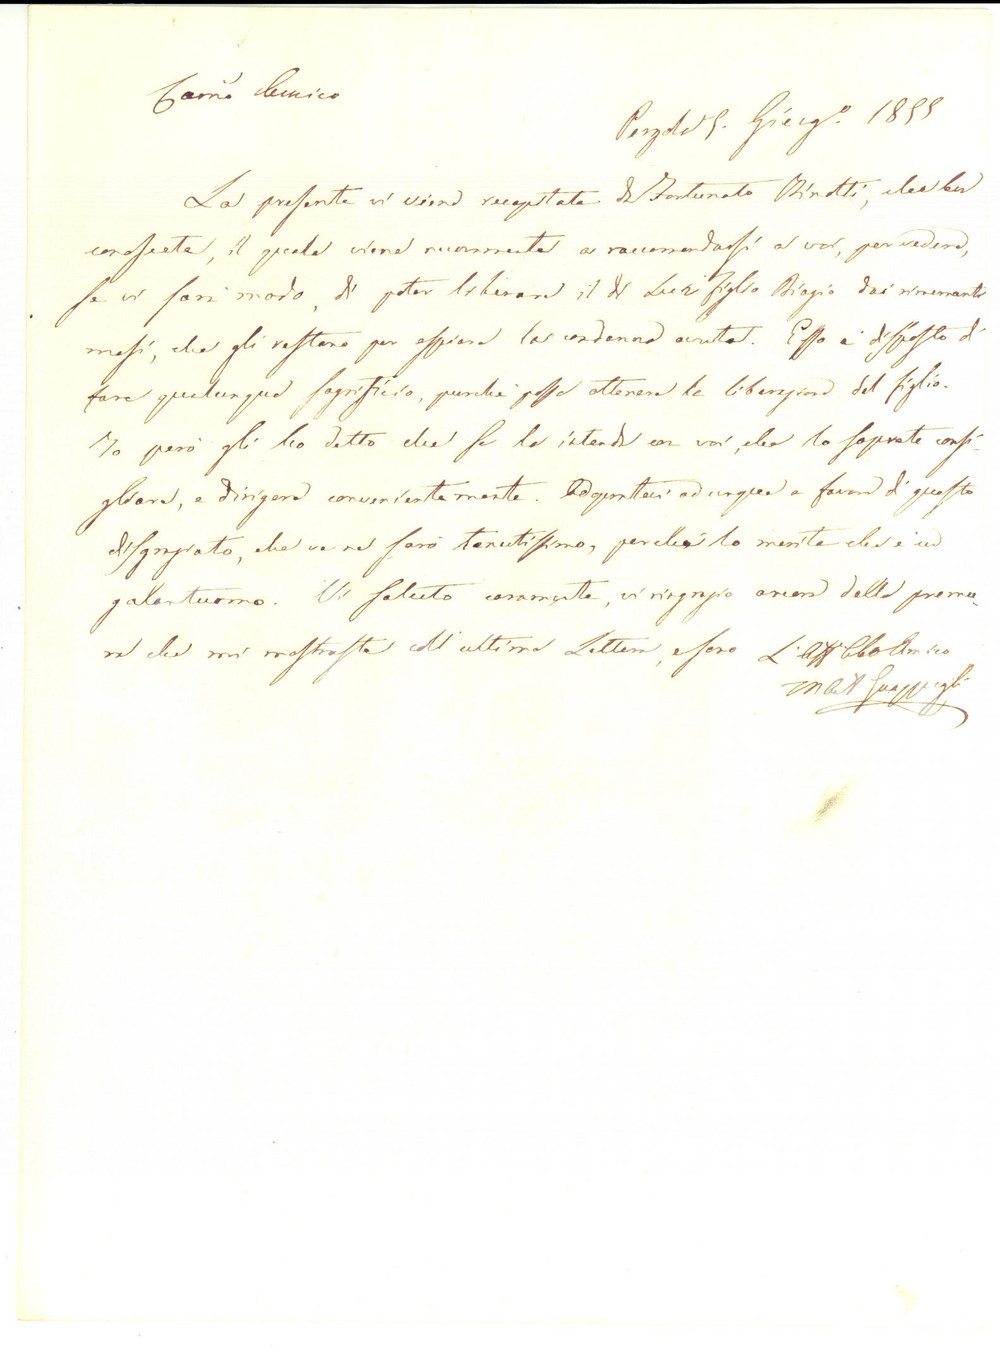 Carmo Amico
5. Giug.o 1855
La presente vi viene recapitata da Fortunato Binotti, che ben
conoscete, il quale viene nuovamente a raccomandarsi a voi, per vedere,
se vi sarà modo, di poter liberare il di Lui figlio Biagio dai rimanenti
mesi, che gli restano per espiare la condanna avuta. Esso è disposto di
fare qualunque sagrificio, purchè possa ottenere la liberazione del figlio.
Io però gli ho detto che se la intenda con voi, che lo saprete consi-
gliare, e dirigere convenientemente. Adopratevi adunque a favore di questo
disgraziato, che ve ne sarò tenutissimo, perchè lo merita che è un
galantuomo. Vi saluto caramente, vi ringrazio ancora della premu-
ra che mi mostraste coll'ultima Lettera, e sono L'Aff Obbo Amico